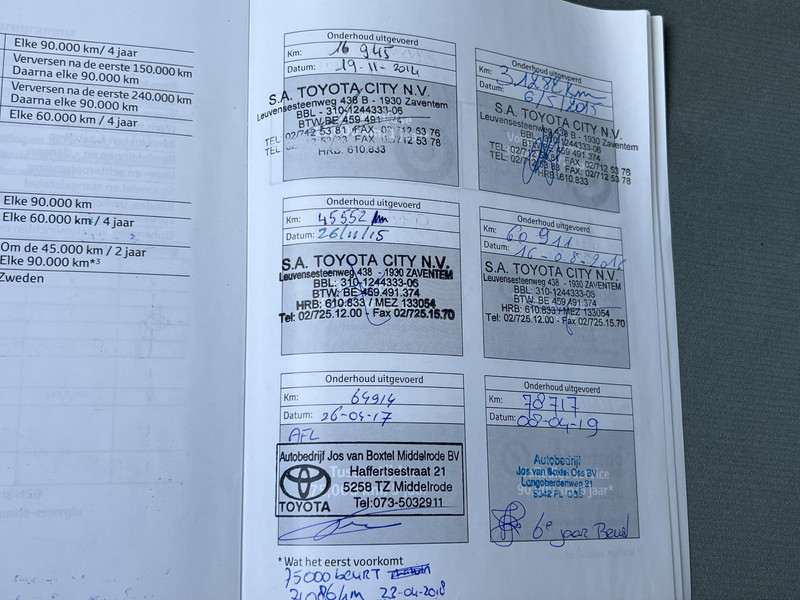 Elke 90.000 km/ 4 jaar
Verversen na de eerste 150.000 km
Daarna elke 90.000 km
Verversen na de eerste 240.000 km
Daarna elke 90.000 km
Elke 60.000 km / 4 jaar
Elke 90.000 km
Elke 60.000 km / 4 jaar
Om de 45.000 km / 2 jaar
Elke 90.000 km*³
Zweden
Onderhoud uitgevoerd
Km: 16 945
Datum: 19-11-2014
S.A. TOYOTA CITY N.V.
Leuvensesteenweg 438 B - 1930 Zaventem
BBL - 310-1244333-06
BTW BE 459 491 374
TEL 02/712 53 81 FAX 02/712 53 76
TEL 02/712 FAX 02/712 53 78
HRB: 610.833
Onderhoud uitgevoerd
Km: 31282 km
Datum: 6/5/2015
S.A. TOYOTA CITY N.V.
Leuvensesteenweg 438 B - 1930 Zaventem
BBL - 310-1244333-06
BTW BE 459.491.374
TEL: 02/712 53 81 FAX: 02/712 53 76
TEL: 02/712 FAX: 02/712 53 78
HRB: 610.833
Onderhoud uitgevoerd
Km: 45552 km
Datum: 26/11/15
S.A. TOYOTA CITY N.V.
Leuvensesteenweg 438 - 1930 ZAVENTEM
BBL: 310-1244333-06
BTW: BE 459.491.374
HRB: 610.833 / MEZ 133054
Tel: 02/725.12.00 - Fax 02/725.15.70
Onderhoud uitgevoerd
Km: 60 911
Datum: 16-08-2016
S.A. TOYOTA CITY N.V.
Leuvensesteenweg 438 - 1930 ZAVENTEM
BBL: 310-1244333-06
BTW: BE 459.491.374
HRB: 610.833 / MEZ 133054
Tel: 02/725.12.00 - Fax 02/725.15.70
Onderhoud uitgevoerd
Km: 64914
Datum: 26-04-17
AFL
Autobedrijf Jos van Boxtel Middelrode BV
Haffertsestraat 21
5258 TZ Middelrode
Tel:073-5032911
TOYOTA
Onderhoud uitgevoerd
Km: 78717
Datum: 08-04-19
Autobedrijf
Jos van Boxtel Oss BV
Langoberdenweg 21
5342
6e jaar
* Wat het eerst voorkomt
75000 beurt
71086 km 23-04-2018